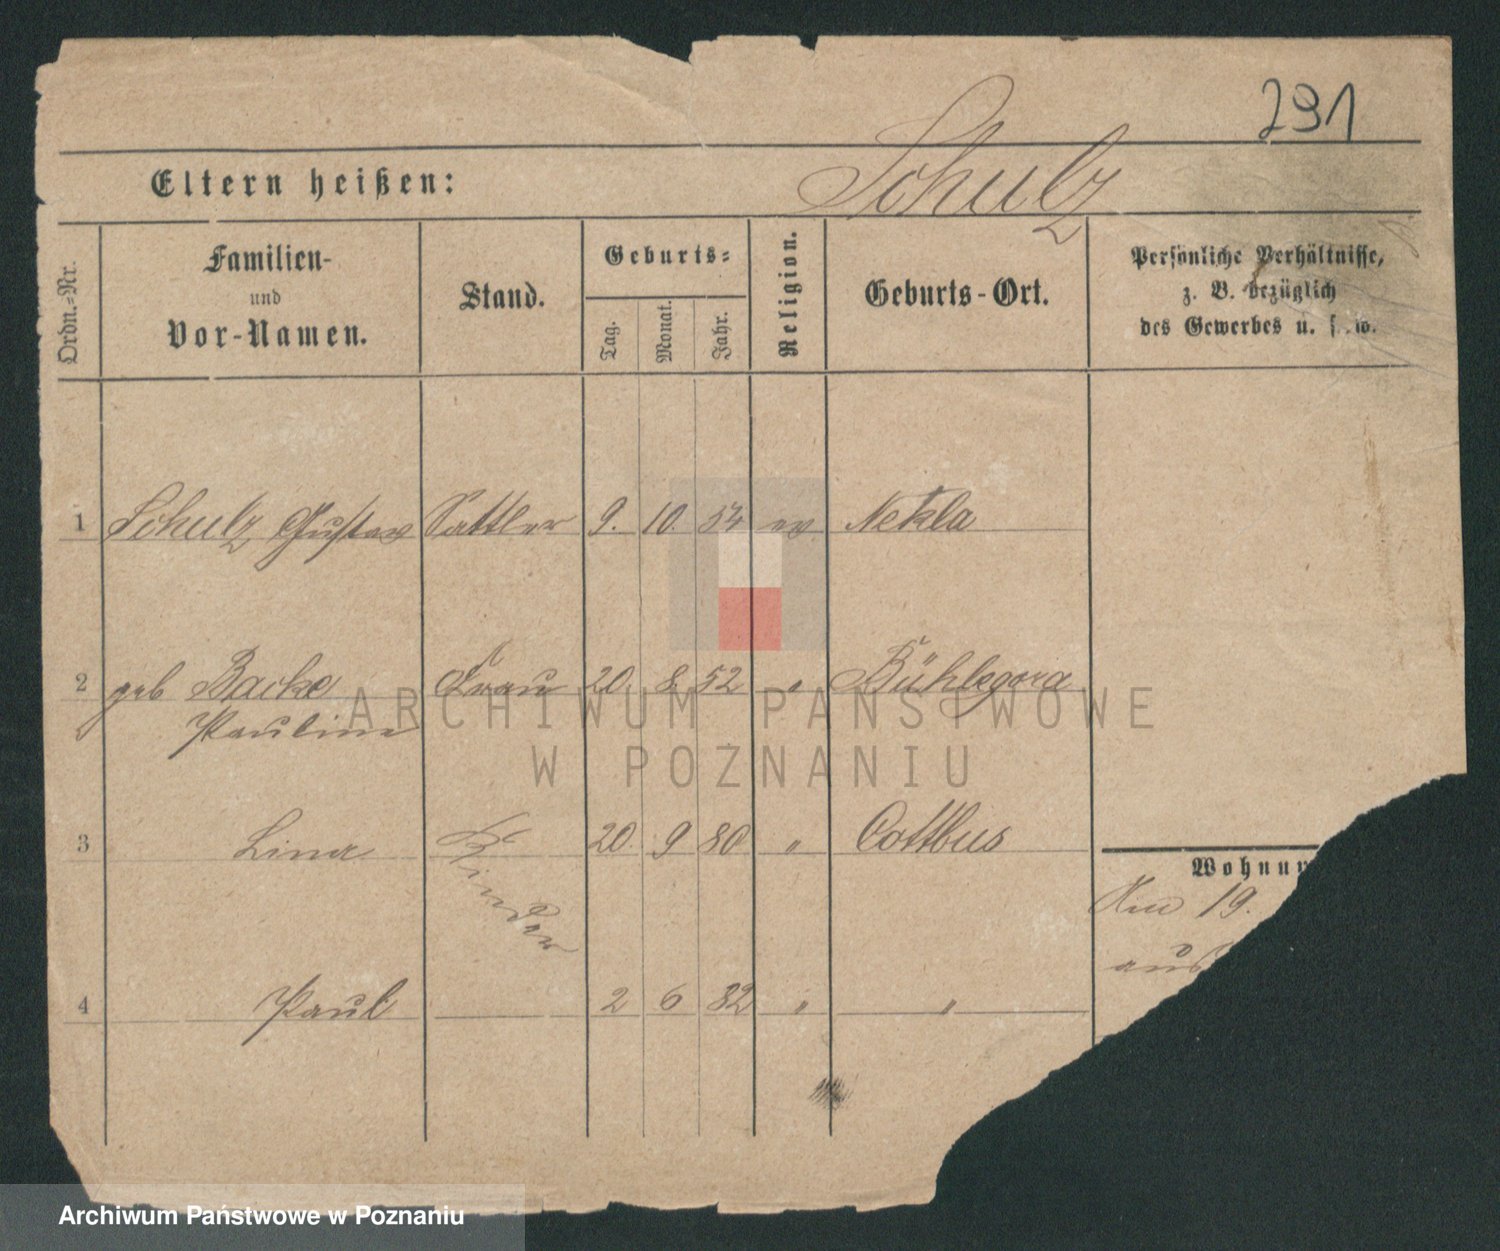 291
Eltern heißen: Schulz
Ordn.-Nr.
Familien-
und
Vor-Namen.
Stand.
Geburts-
Tag.
Monat.
Jahr.
Religion.
Geburts-Ort.
Persönliche Verhältnisse,
z. B. bezüglich
des Gewerbes u. s. w.
1 Schulz Gustav Sattler 9. 10. 54 ev Nekla
2 geb Backe Frau 20 8 52 " Bühlegora
Pauline
3 Lina Kinder 20. 9 80 " Cottbus
4 Paul 2 6 82 " "
Wohnun
19.
aus
ARCHIWUM PAŃSTWOWE
W POZNANIU
Archiwum Państwowe w Poznaniu